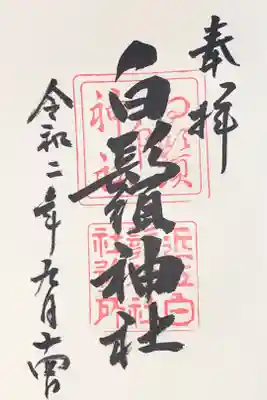 奉拝
白鬚神社
令和二年九月十四日